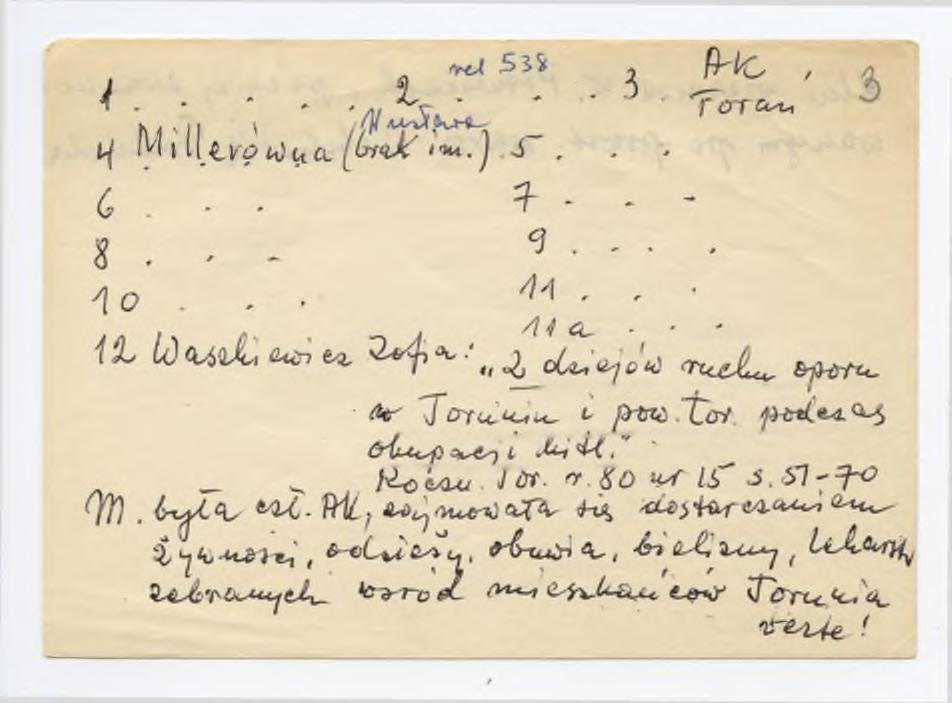 rel 538
1 . . . . . 2 . . . . 3. AK Toruń 3
4 Millerówna (brak im.) . 5 . . .
6 . . . 7 . . .
8 . . . 9 . . . .
10 . . . 11 . . .
11a . . .
12 Waszkiewicz Zofia: "Z dziejów ruchu oporu
w Toruniu i pow. tor. podczas
okupacji hitl."
Roczn. Tor. r. 80 nr 15 s. 51-70
M. była czł. AK, zajmowała się dostarczaniem
żywności, odzieży, obuwia, bielizny, lekarstw
zebranych wśród mieszkańców Torunia
verte!